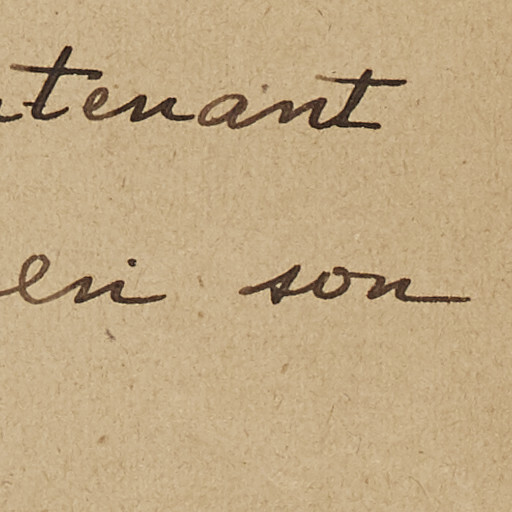 tenant
en son